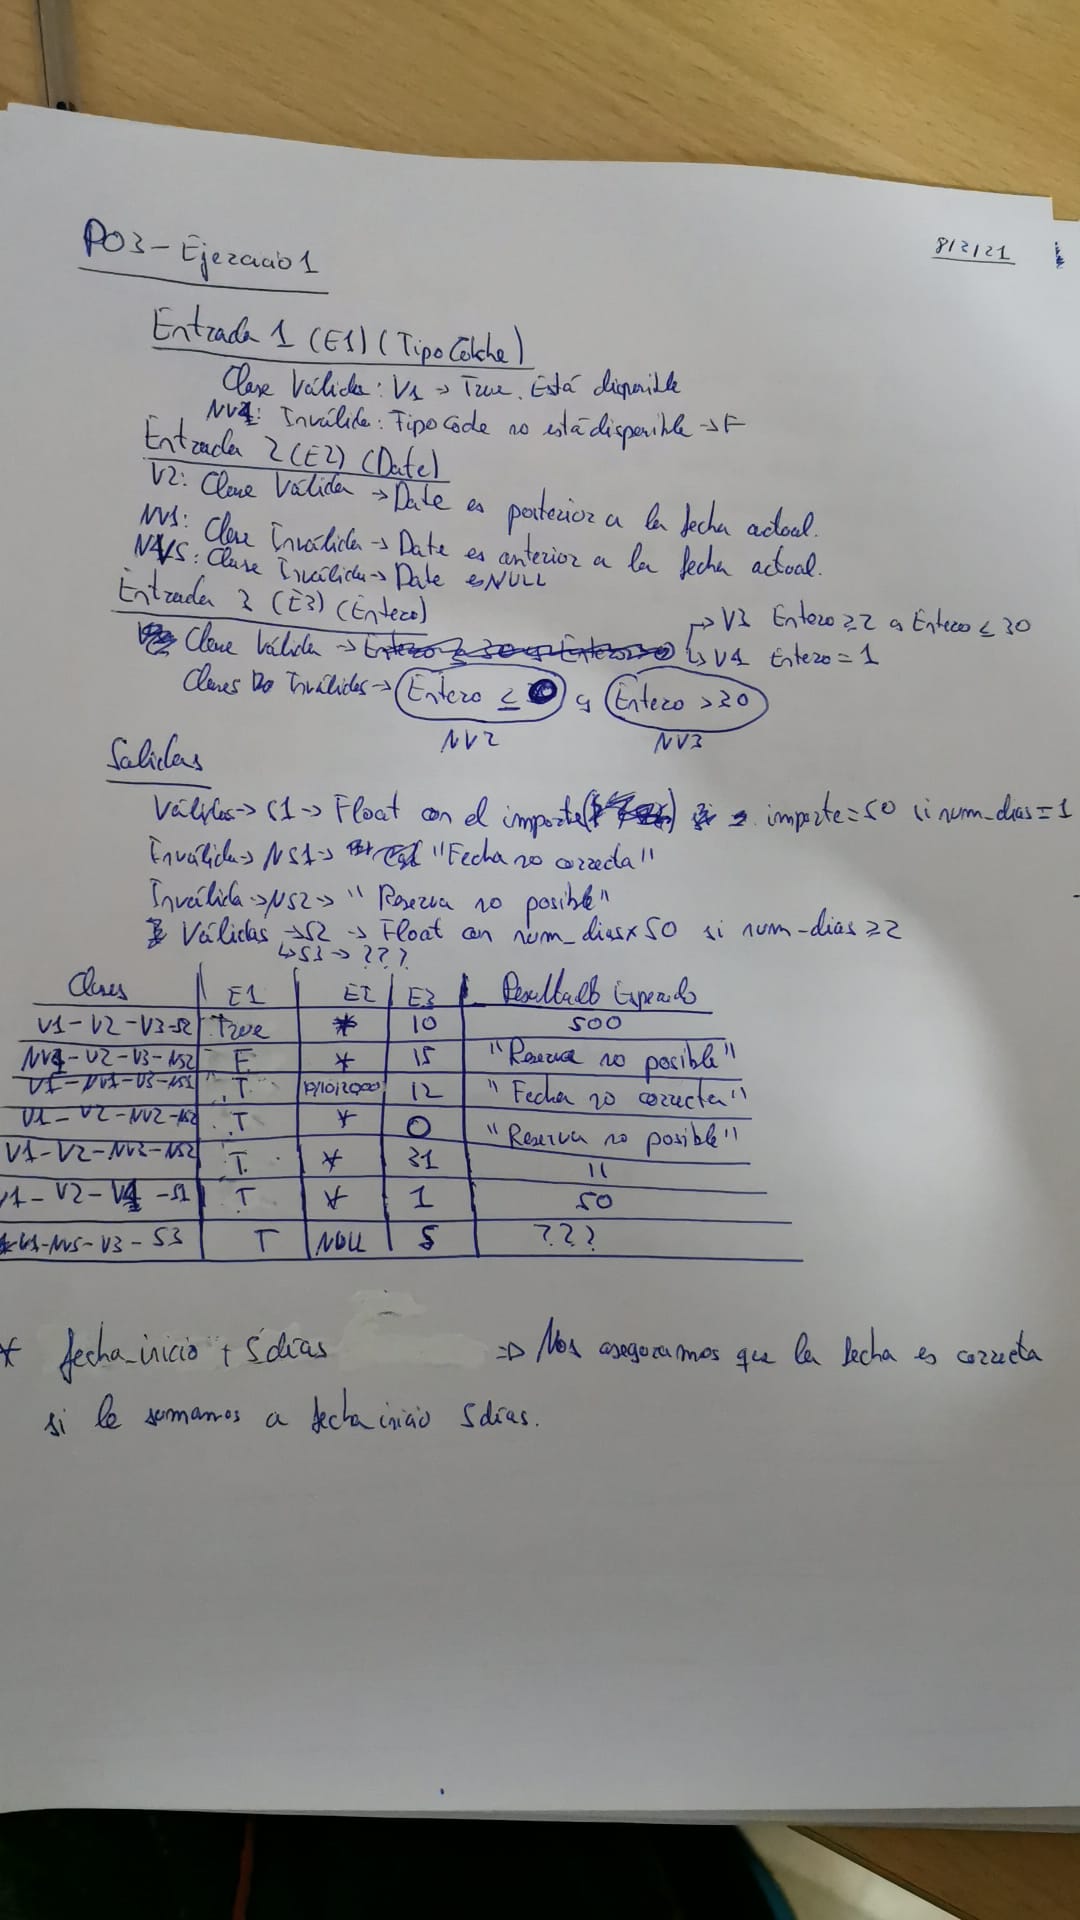 P03 - Ejercicio 1
8/3/21
Entrada 1 (E1) (TipoCoche)
Clase Válida: V1 → True. Está disponible
NV4: Inválida: TipoCoche no está disponible → F
Entrada 2 (E2) (Date)
V2: Clase Válida → Date es posterior a la fecha actual.
NV1: Clase Inválida → Date es anterior a la fecha actual.
NV5: Clase Inválida → Date es NULL
Entrada 3 (E3) (Entero)
Clase Válida → → V3 Entero ≥ 2 y Entero ≤ 30
↳ V4 Entero = 1
Clases Inválidas → Entero ≤ 0 y Entero > 30
NV2 NV3
Salidas
Válidas → S1 → Float con el importe importe = 50 si num_dias = 1
Inválida → NS1 → "Fecha no correcta"
Inválida → NS2 → "Reserva no posible"
Válidas → S2 → Float con num_dias x 50 si num_dias ≥ 2
↳ S3 → ???
Clases E1 E2 E3 Resultado Esperado
V1-V2-V3-S2 True * 10 500
NV4-V2-V3-NS2 F * 15 "Reserva no posible"
V1-NV1-V3-NS1 T 10/10/2000 12 "Fecha no correcta"
V1-V2-NV2-NS2 T * 0 "Reserva no posible"
V1-V2-NV3-NS2 T * 31 "
V1-V2-V4-S1 T * 1 50
V1-NV5-V3-S3 T NULL 5 ???
* fecha_inicio + 5 días ⇒ Nos aseguramos que la fecha es correcta
si le sumamos a fecha inicio 5 días.